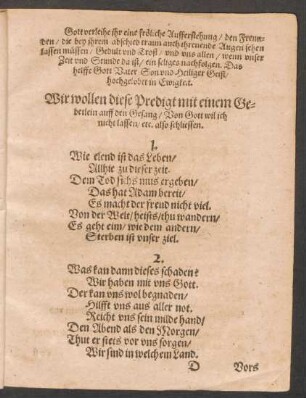 Gott verleihe ihr eine fröliche Aufferstehung / den Freun-
den / die bey ihrem abschied traurn auch threnende Augen sehen
lassen müssen / Gedult vnd Trost / vnd vns allen / wenn vnser
Zeit vnd Stunde da ist / ein seliges nachfolgen. Das
helffe Gott Vater Son vnd Heiliger Geist /
hochgelobet in Ewigkeit.
Wir wollen diese Predigt mit einem Ge-
betlein auff den Gesang / Von Gott wil ich
nicht lassen / etc. also schliessen.
1.
Wie elend ist das Leben /
Allhie zu dieser zeit.
Dem Tod sichs mus ergeben /
Das hat Adam bereit /
Es macht der freud nicht viel.
Von der Welt / heists / thu wandern /
Es geht eim / wie dem andern /
Sterben ist vnser ziel.
2.
Was kan dann dieses schaden?
Wir haben mit vns Gott.
Der kan vns wol begnaden /
Hilfft vns aus aller not.
Reicht vns sein milde hand /
Den Abend als den Morgen /
Thut er stets vor vns sorgen /
Wir sind in welchem Land.
D Vors